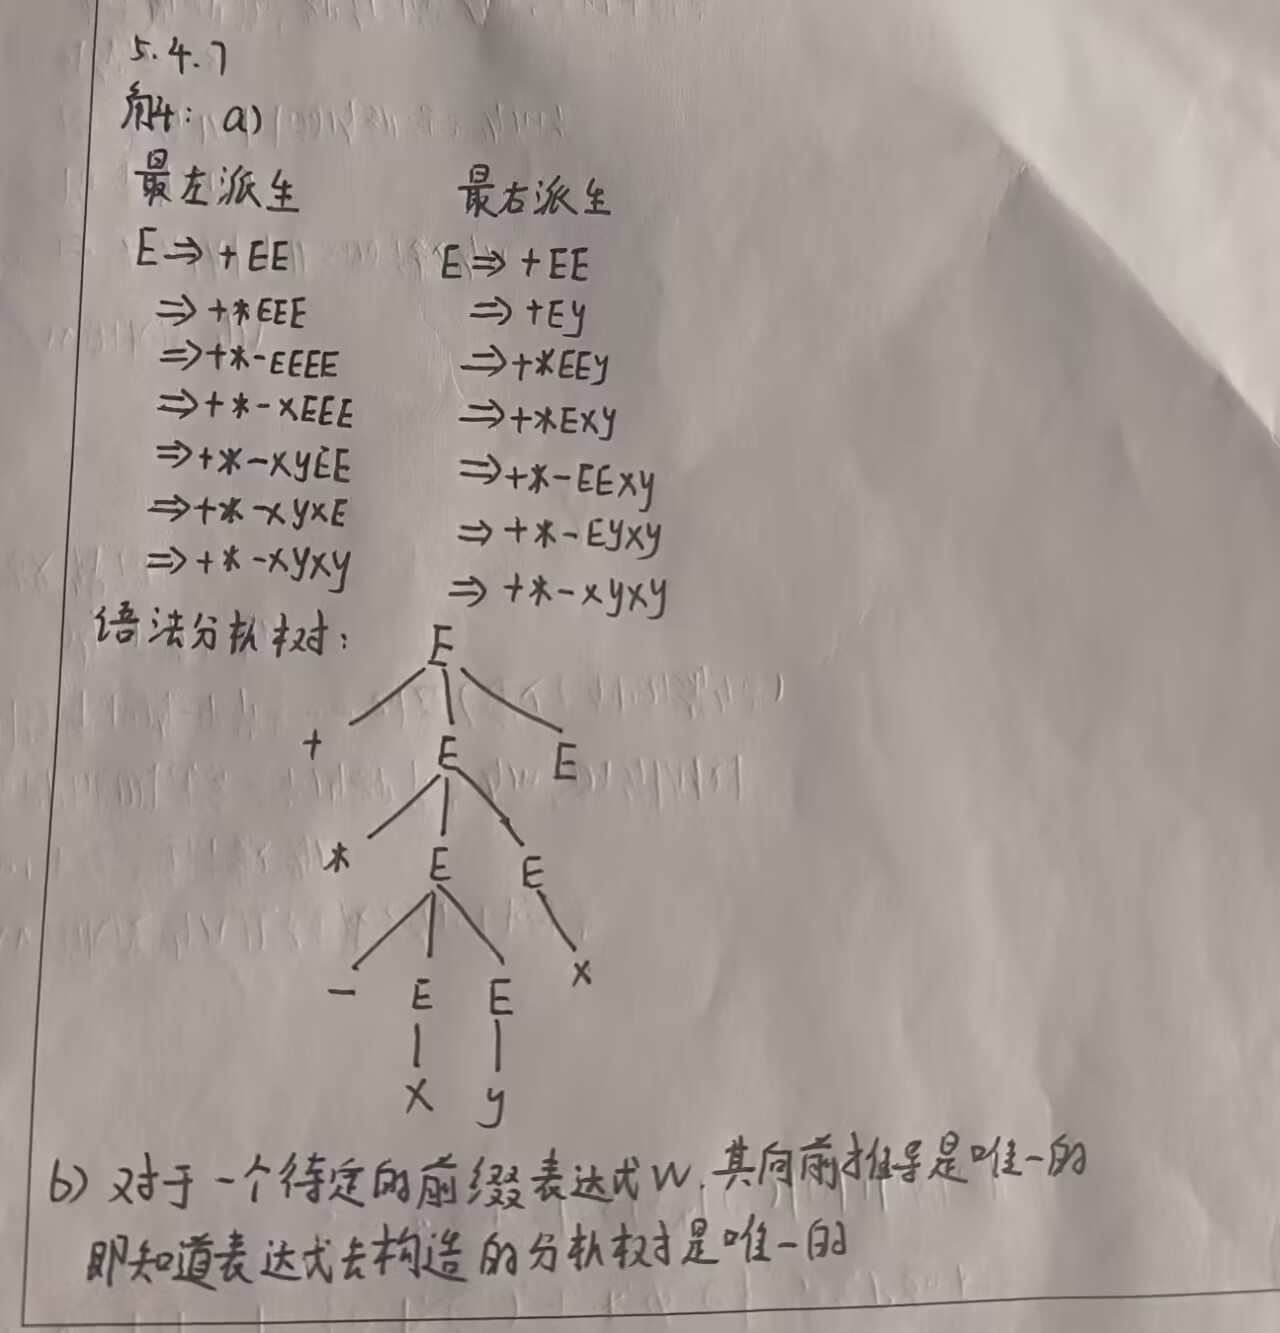 5.4.7
解: a)
最左派生
E⇒+EE
⇒+*EEE
⇒+*-EEEE
⇒+*-xEEE
⇒+*-xyEE
⇒+*-xyxE
⇒+*-xyxy
最右派生
E⇒+EE
⇒+Ey
⇒+*EEy
⇒+*Exy
⇒+*-EExy
⇒+*-Eyxy
⇒+*-xyxy
语法分析树:
E
+ E E
* E E
- E E x
x y
b) 对于一个待定的前缀表达式w,其向前推导是唯一的
即知道表达式去构造的分析树是唯一的